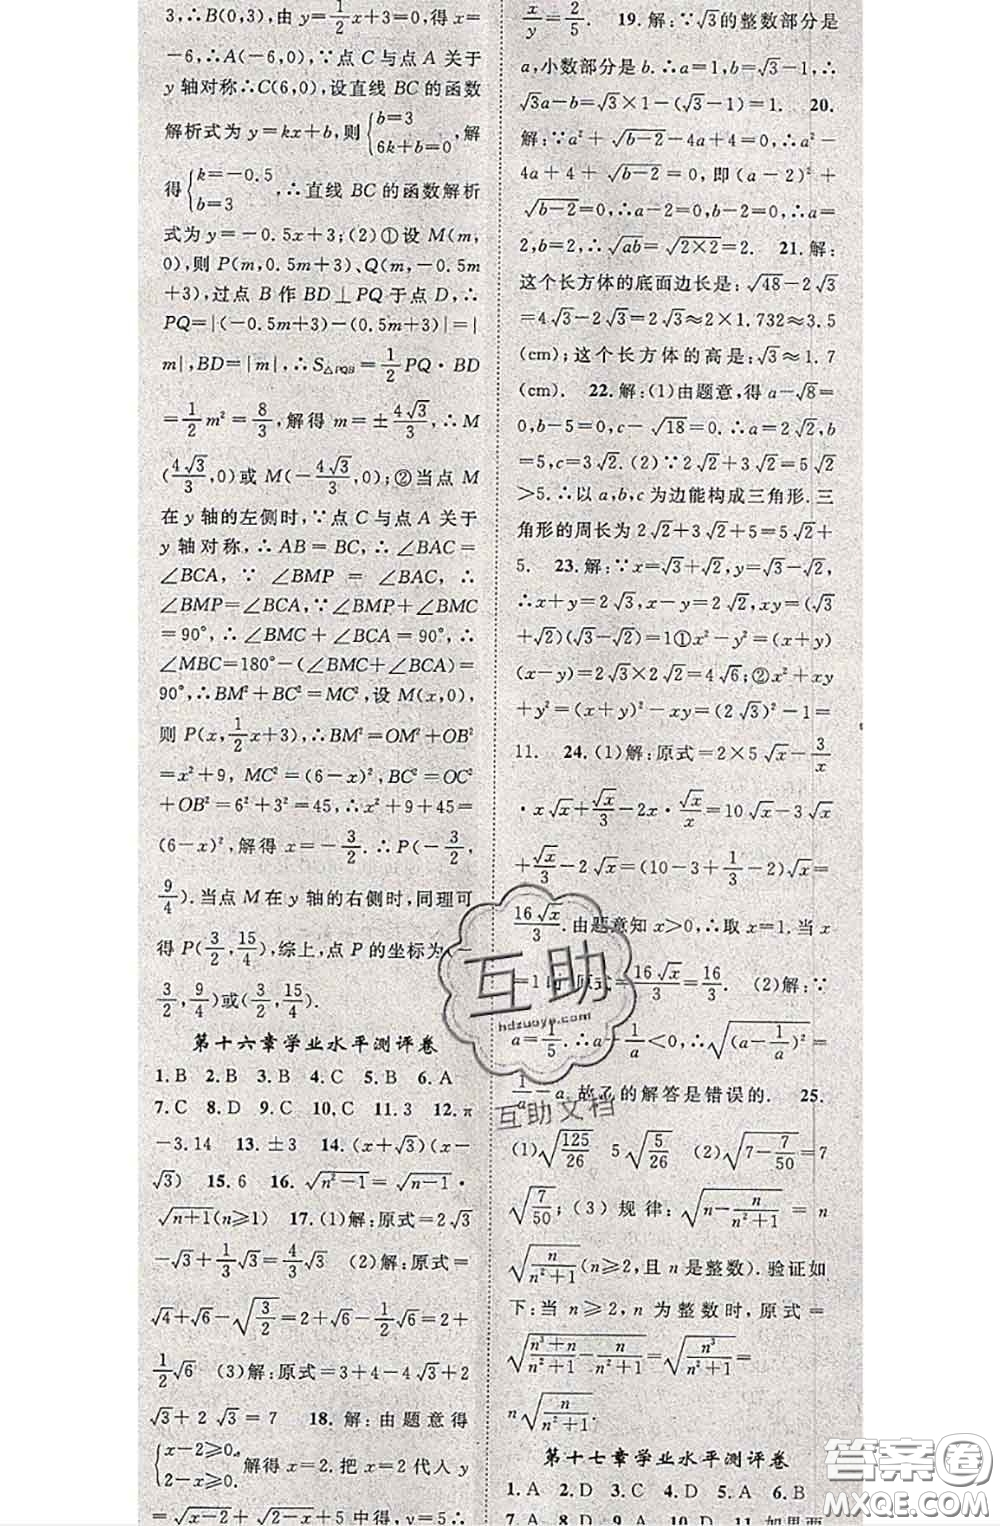 3,∴B(0,3),由 y=1/2x+3=0,得 x=
-6,∴A(-6,0),∵点 C 与点 A 关于
y 轴对称∴C(6,0),设直线 BC 的函数
解析式为 y=kx+b,则{b=3 6k+b=0,解
得{k=-0.5 b=3,∴直线 BC 的函数解析
式为 y=-0.5x+3;(2)①设 M(m,
0),则 P(m,0.5m+3)、Q(m,-0.5m
+3),过点 B 作 BD⊥PQ 于点 D,∴
PQ=|(-0.5m+3)-(0.5m+3)|=|
m|,BD=|m|,∴S△PQB=1/2PQ·BD
=1/2m²=8/3,解得 m=±4√3/3,∴M
(4√3/3,0)或 M(-4√3/3,0);②当点 M
在 y 轴的左侧时,∵点 C 与点 A 关于
y 轴对称,∴AB=BC,∴∠BAC=
∠BCA,∵∠BMP=∠BAC,∴
∠BMP=∠BCA,∵∠BMP+∠BMC
=90°,∴∠BMC+∠BCA=90°,∴
∠MBC=180°-(∠BMC+∠BCA)=
90°,∴BM²+BC²=MC²,设 M(x,0),
则 P(x,1/2x+3),∴BM²=OM²+OB²
=x²+9,MC²=(6-x)²,BC²=OC²
+OB²=6²+3²=45,∴x²+9+45=
(6-x)²,解得 x=-3/2.∴P(-3/2,
9/4).当点 M 在 y 轴的右侧时,同理可
得 P(3/2,15/4),综上,点 P 的坐标为(-
3/2,9/4)或(3/2,15/4).
第十六章学业水平测评卷
1.B 2.B 3.B 4.C 5.B 6.A
7.C 8.D 9.C 10.C 11.3 12.π
-3.14 13.±3 14.(x+√3)(x-
√3) 15.6 16.√(n²-1)=√(n-1)·
√(n+1)(n≥1) 17.(1)解:原式=2√3
-√3+1/3√3=4/3√3 (2)解:原式=
√4+√6-√(3/2)=2+√6-1/2√6=2+
1/2√6 (3)解:原式=3+4-4√3+2
√3+2√3=7 18.解:由题意得
{x-2≥0, 2-x≥0, 解得 x=2.把 x=2 代入 y
=√(x-2)+√(2-x)+5 中得,y=5.
x/y=2/5. 19.解:∵√3的整数部分是
a,小数部分是 b.∴a=1,b=√3-1,∴
√3a-b=√3×1-(√3-1)=1. 20.
解:∵a²+√(b-2)-4a+4=0,∴a²-
4a+4+√(b-2)=0,即(a-2)²+
√(b-2)=0,∴a-2=0,b-2=0,∴a=
2,b=2,∴√ab=√(2×2)=2. 21.解:
这个长方体的底面边长是:√48-2√3
=4√3-2√3=2√3≈2×1.732≈3.5
(cm);这个长方体的高是:√3≈1.7
(cm). 22.解:(1)由题意,得 a-√8=
0,b-5=0,c-√18=0.∴a=2√2,b
=5,c=3√2.(2)∵2√2+3√2=5√2
>5.∴以 a,b,c 为边能构成三角形.三
角形的周长为 2√2+3√2+5=5√2+
5. 23.解:∵x=√3+√2,y=√3-√2,
∴x+y=2√3,x-y=2√2,xy=(√3
+√2)(√3-√2)=1①x²-y²=(x+y)
(x-y)=2√3×2√2=4√6;②x²+xy
+y²=(x+y)²-xy=(2√3)²-1=
11. 24.(1)解:原式=2×5√x-3/x
·x√x+√x/3-2x·√x/x=10√x-3√x
+√x/3-2√x=(10-3+1/3-2)√x=
16√x/3.由题意知 x>0,∴取 x=1.当 x
=1时,原式=16√x/3=16/3. (2)解:∵
a=1/5.∴a-1/a<0,∴√((a-1/a)²)=
1/a-a.故乙的解答是错误的. 25.
(1)√(125/26) 5√(5/26) (2)√(7-7/50)=7
√(7/50);(3)规律:√(n-n/(n²+1))=n
√(n/(n²+1))(n≥2,且 n 是整数).验证如
下:当 n≥2,n 为整数时,原式=
√((n³+n)/(n²+1)-n/(n²+1))=√(n³/(n²+1))=
n√(n/(n²+1)).
第十七章学业水平测评卷
1.A 2.D 3.C 4.D 5.A 6.B
互助
hdzuoye.com
互助文档
答案圈
MXQE.COM